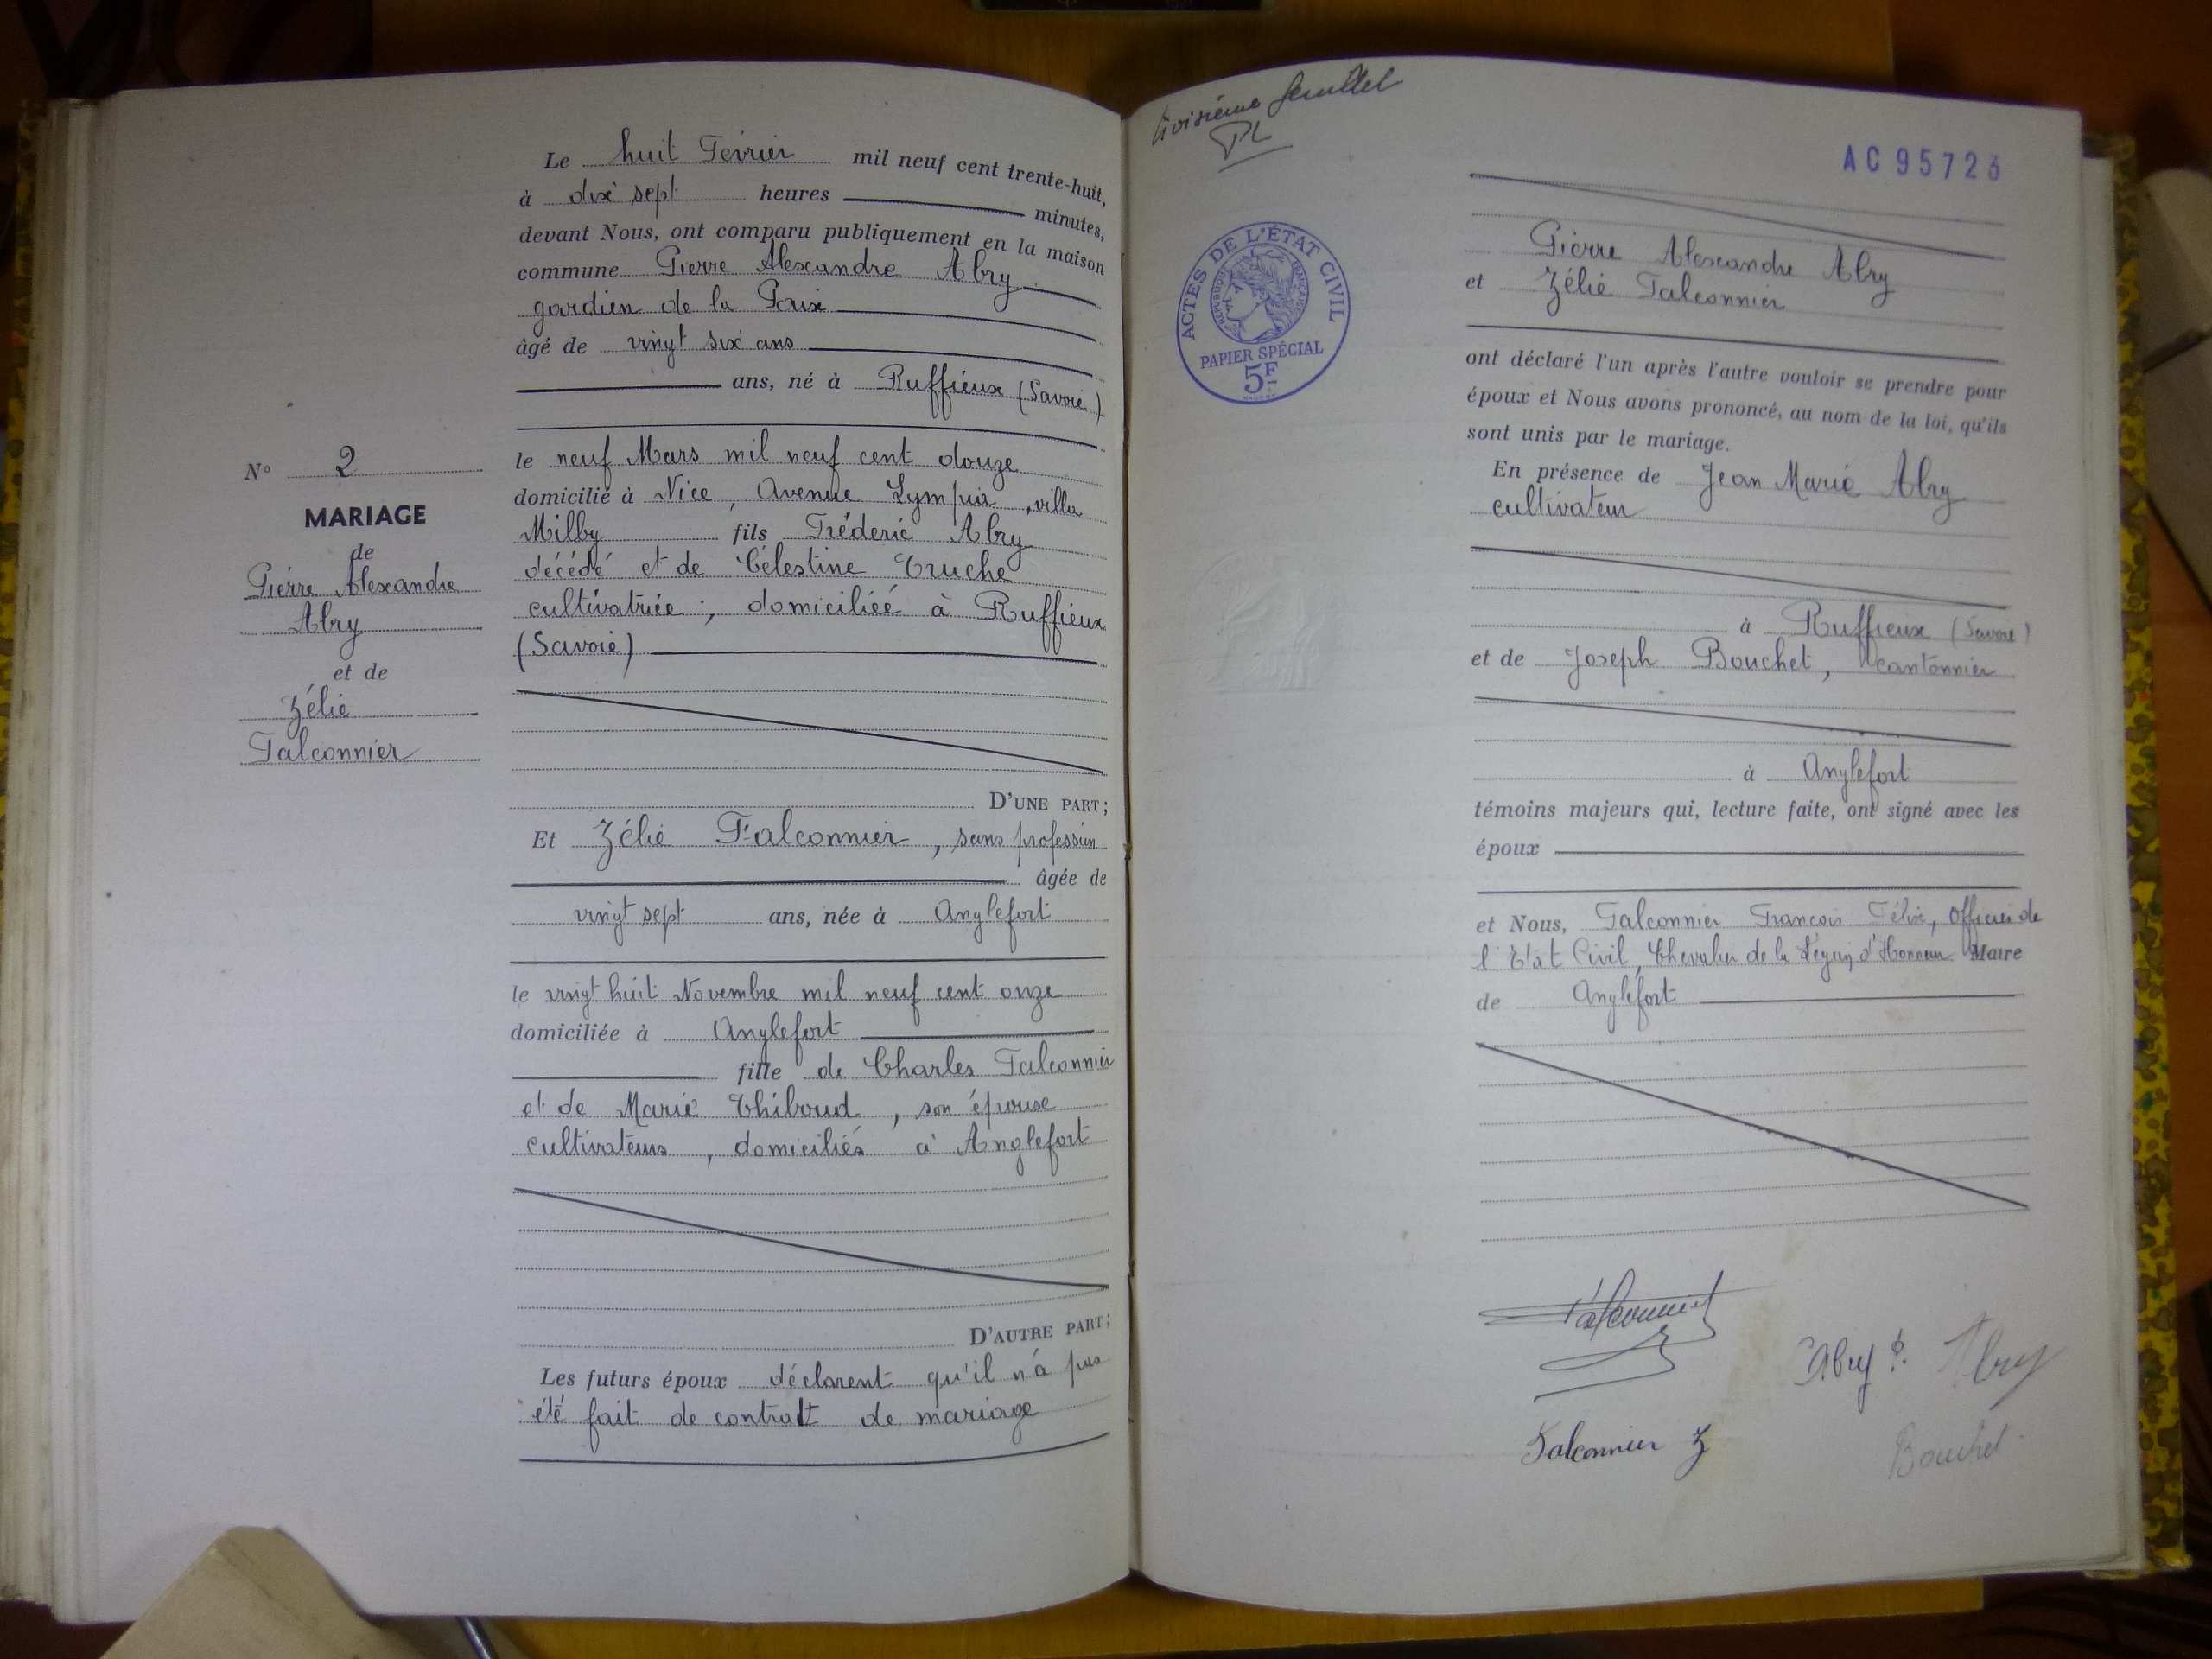 Le huit Février mil neuf cent trente-huit,
à dix sept heures minutes,
devant Nous, ont comparu publiquement en la maison
commune Pierre Alexandre Abry
gardien de la Paix
âgé de vingt six ans
ans, né à Ruffieux (Savoie)
le neuf Mars mil neuf cent douze
domicilié à Nice, Avenue villa
Milby fils Fréderic Abry
décédé et de Célestine Truche
cultivatrice, domiciliée à Ruffieux
(Savoie)
N° 2
MARIAGE
de
Pierre Alexandre
Abry
et de
Zélie
Falconnier
D'UNE PART;
Et Zélie Falconnier, sans profession
âgée de
vingt sept ans, née à Anglefort
le vingt huit Novembre mil neuf cent onze
domiciliée à Anglefort
fille de Charles Falconnier
et de Marie Thiboud, son épouse
cultivateurs, domiciliés à Anglefort
D'AUTRE PART;
Les futurs époux déclarent qu'il n'a pas
été fait de contrat de mariage
troisième feuillet
AC 95723
ACTES DE L'ÉTAT CIVIL
RÉPUBLIQUE FRANÇAISE
PAPIER SPÉCIAL
5F
Pierre Alexandre Abry
et Zélie Falconnier
ont déclaré l'un après l'autre vouloir se prendre pour
époux et Nous avons prononcé, au nom de la loi, qu'ils
sont unis par le mariage.
En présence de Jean Marie Abry
cultivateur
à Ruffieux (Savoie)
et de Joseph Bouchet, cantonnier
à Anglefort
témoins majeurs qui, lecture faite, ont signé avec les
époux
et Nous, Falconnier François Félix, Officier de
l'Etat Civil, Chevalier de la Légion d'Honneur Maire
de Anglefort
Falconnier
Abry P. Abry
Falconnier Z
Bouchet